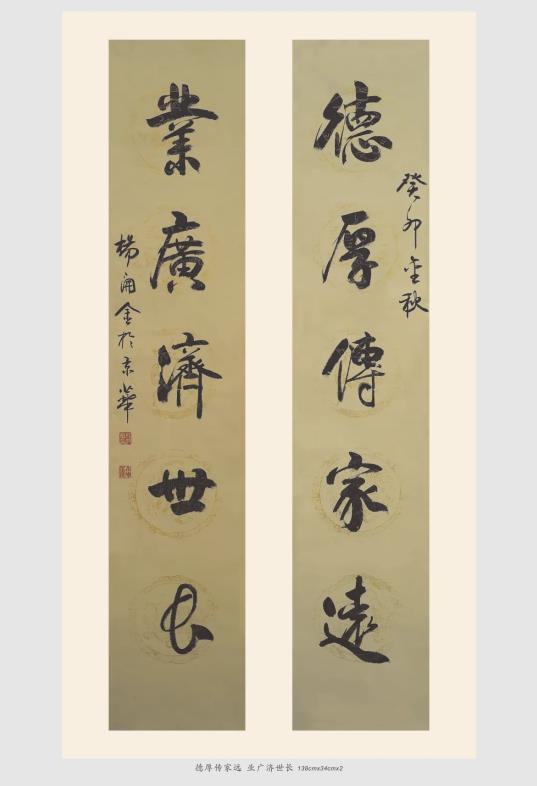 德厚傳家遠
癸卯金秋
業廣濟世長
金於京華
德厚传家远 业广济世长 138cmx34cmx2